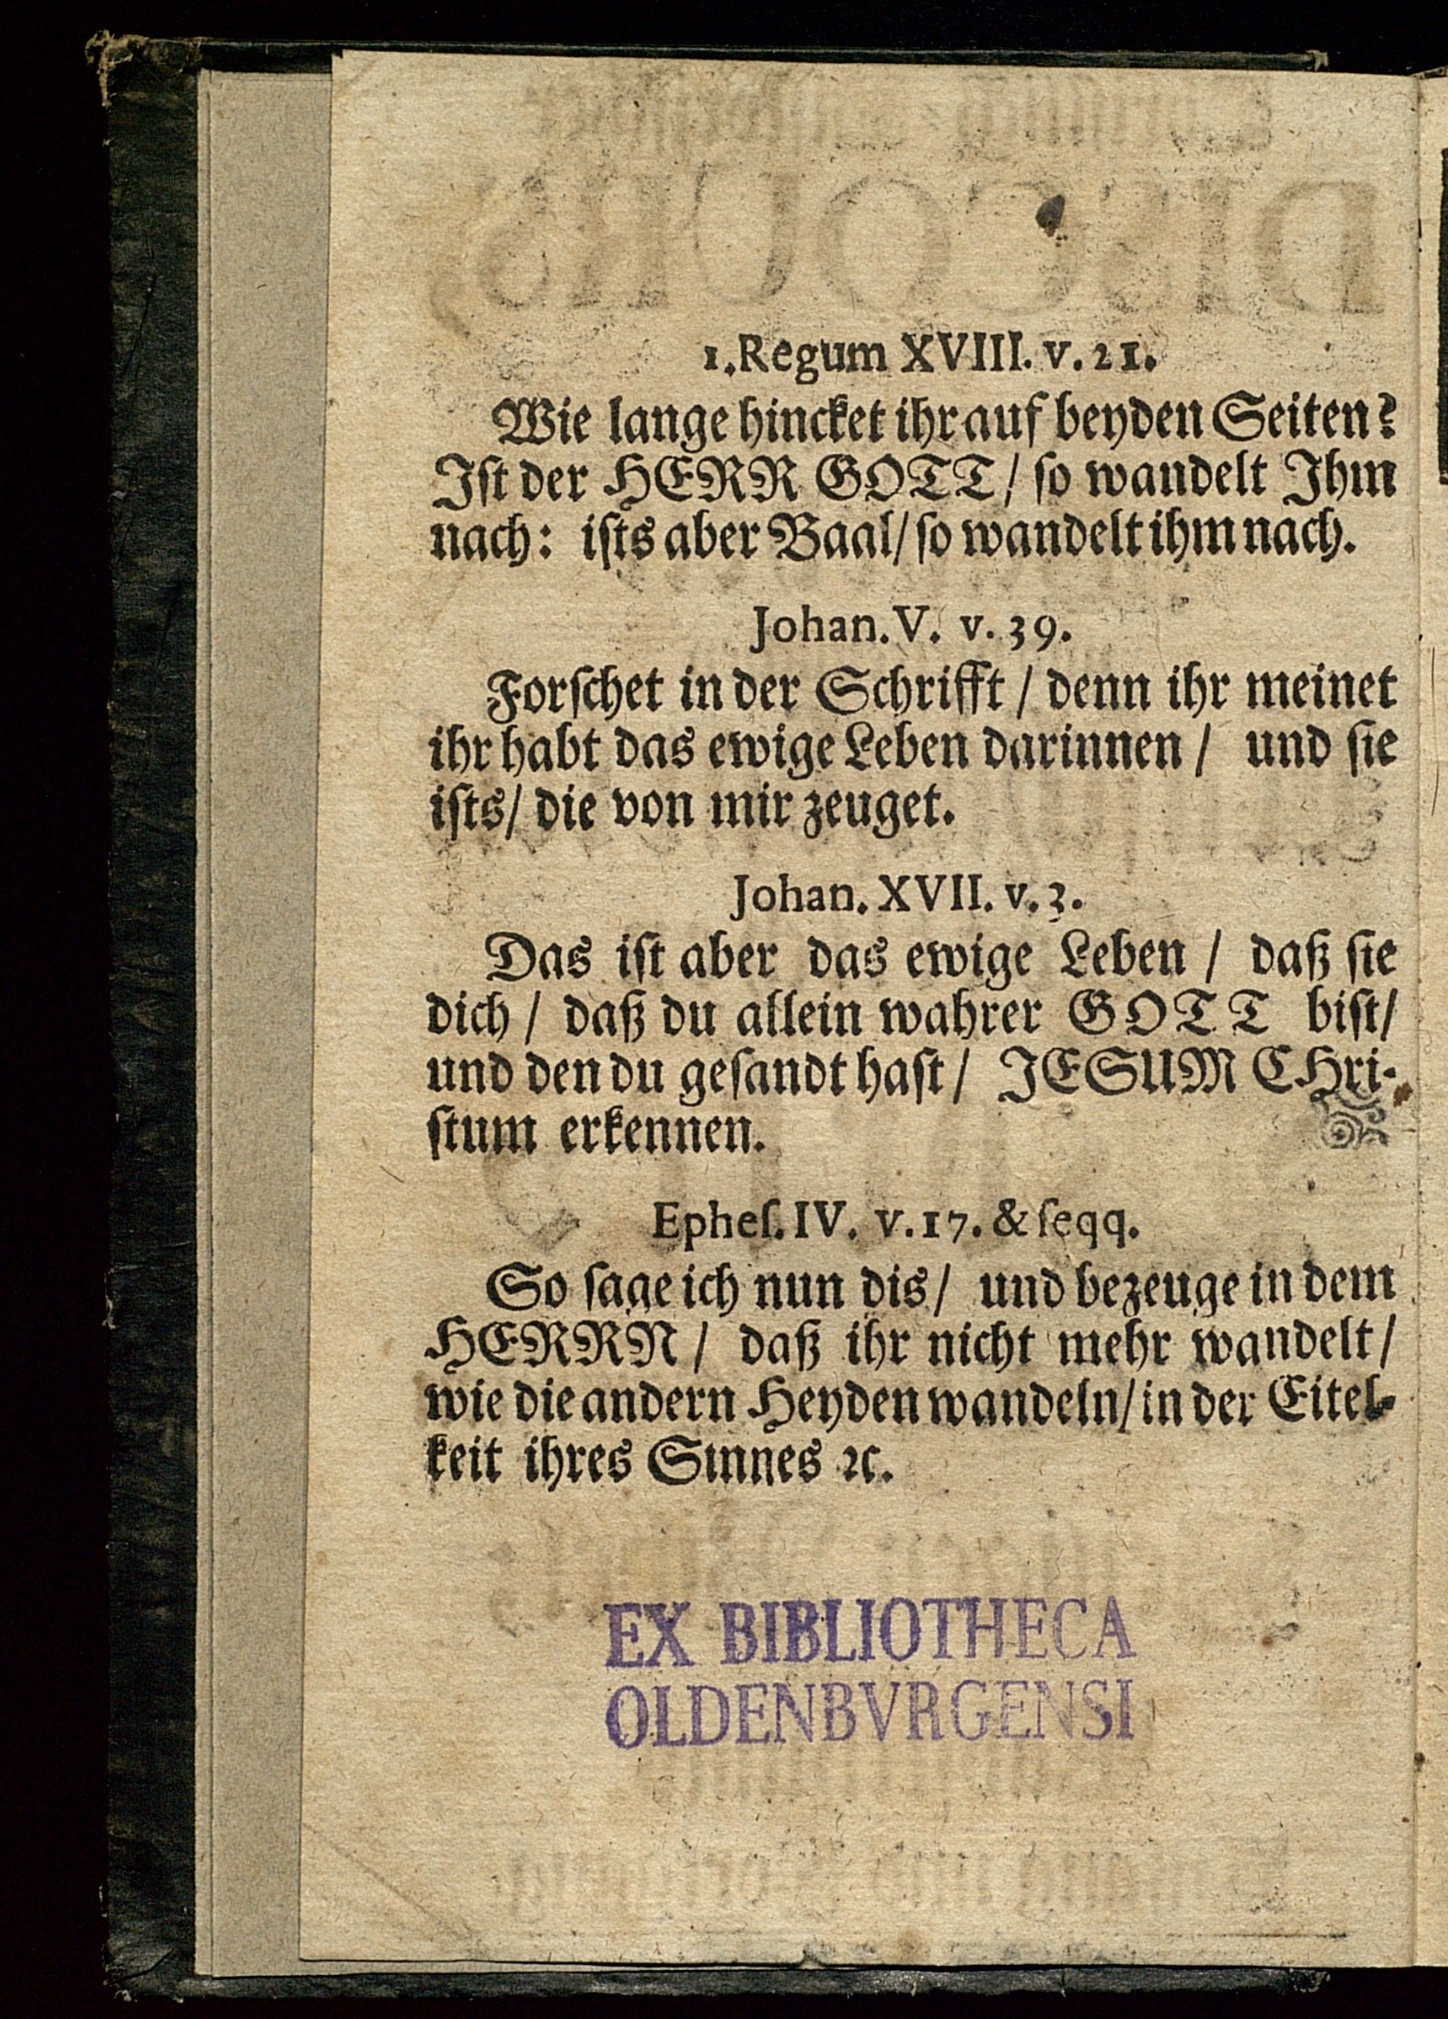 1. Regum XVIII. v. 21.
Wie lange hincket ihr auf beyden Seiten?
Iſt der HERR GOTT / ſo wandelt Ihm
nach: iſts aber Baal / ſo wandelt ihm nach.
Johan. V. v. 39.
Forſchet in der Schrifft / denn ihr meinet
ihr habt das ewige Leben darinnen / und ſie
iſts / die von mir zeuget.
Johan. XVII. v. 3.
Das iſt aber das ewige Leben / daß ſie
dich / daß du allein wahrer GOTT biſt /
und den du geſandt haſt / JESUM CHri-
ſtum erkennen.
Epheſ. IV. v. 17. & ſeqq.
So ſage ich nun dis / und bezeuge in dem
HERRN / daß ihr nicht mehr wandelt /
wie die andern Heyden wandeln / in der Eitel-
keit ihres Sinnes ꝛc.
EX BIBLIOTHECA
OLDENBVRGENSI